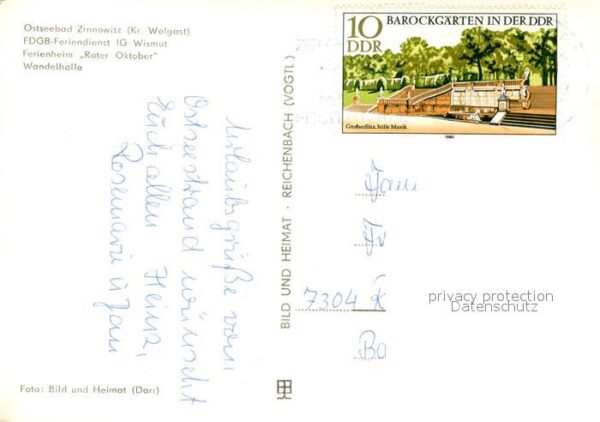 Ostseebad Zinnowitz (Kr. Wolgast)
FDGB-Feriendienst IG Wismut
Ferienheim „Roter Oktober"
Wandelhalle
Urlaubsgrüße vom
Ostseestrand wünscht
Euch allen Heinz,
Rosemarie u. Jan
Foto: Bild und Heimat (Darr)
BILD UND HEIMAT · REICHENBACH (VOGTL)
10
DDR
BAROCKGÄRTEN IN DER DDR
Großsedlitz, Stille Musik
1980
Fam
7304
privacy protection
Datenschutz